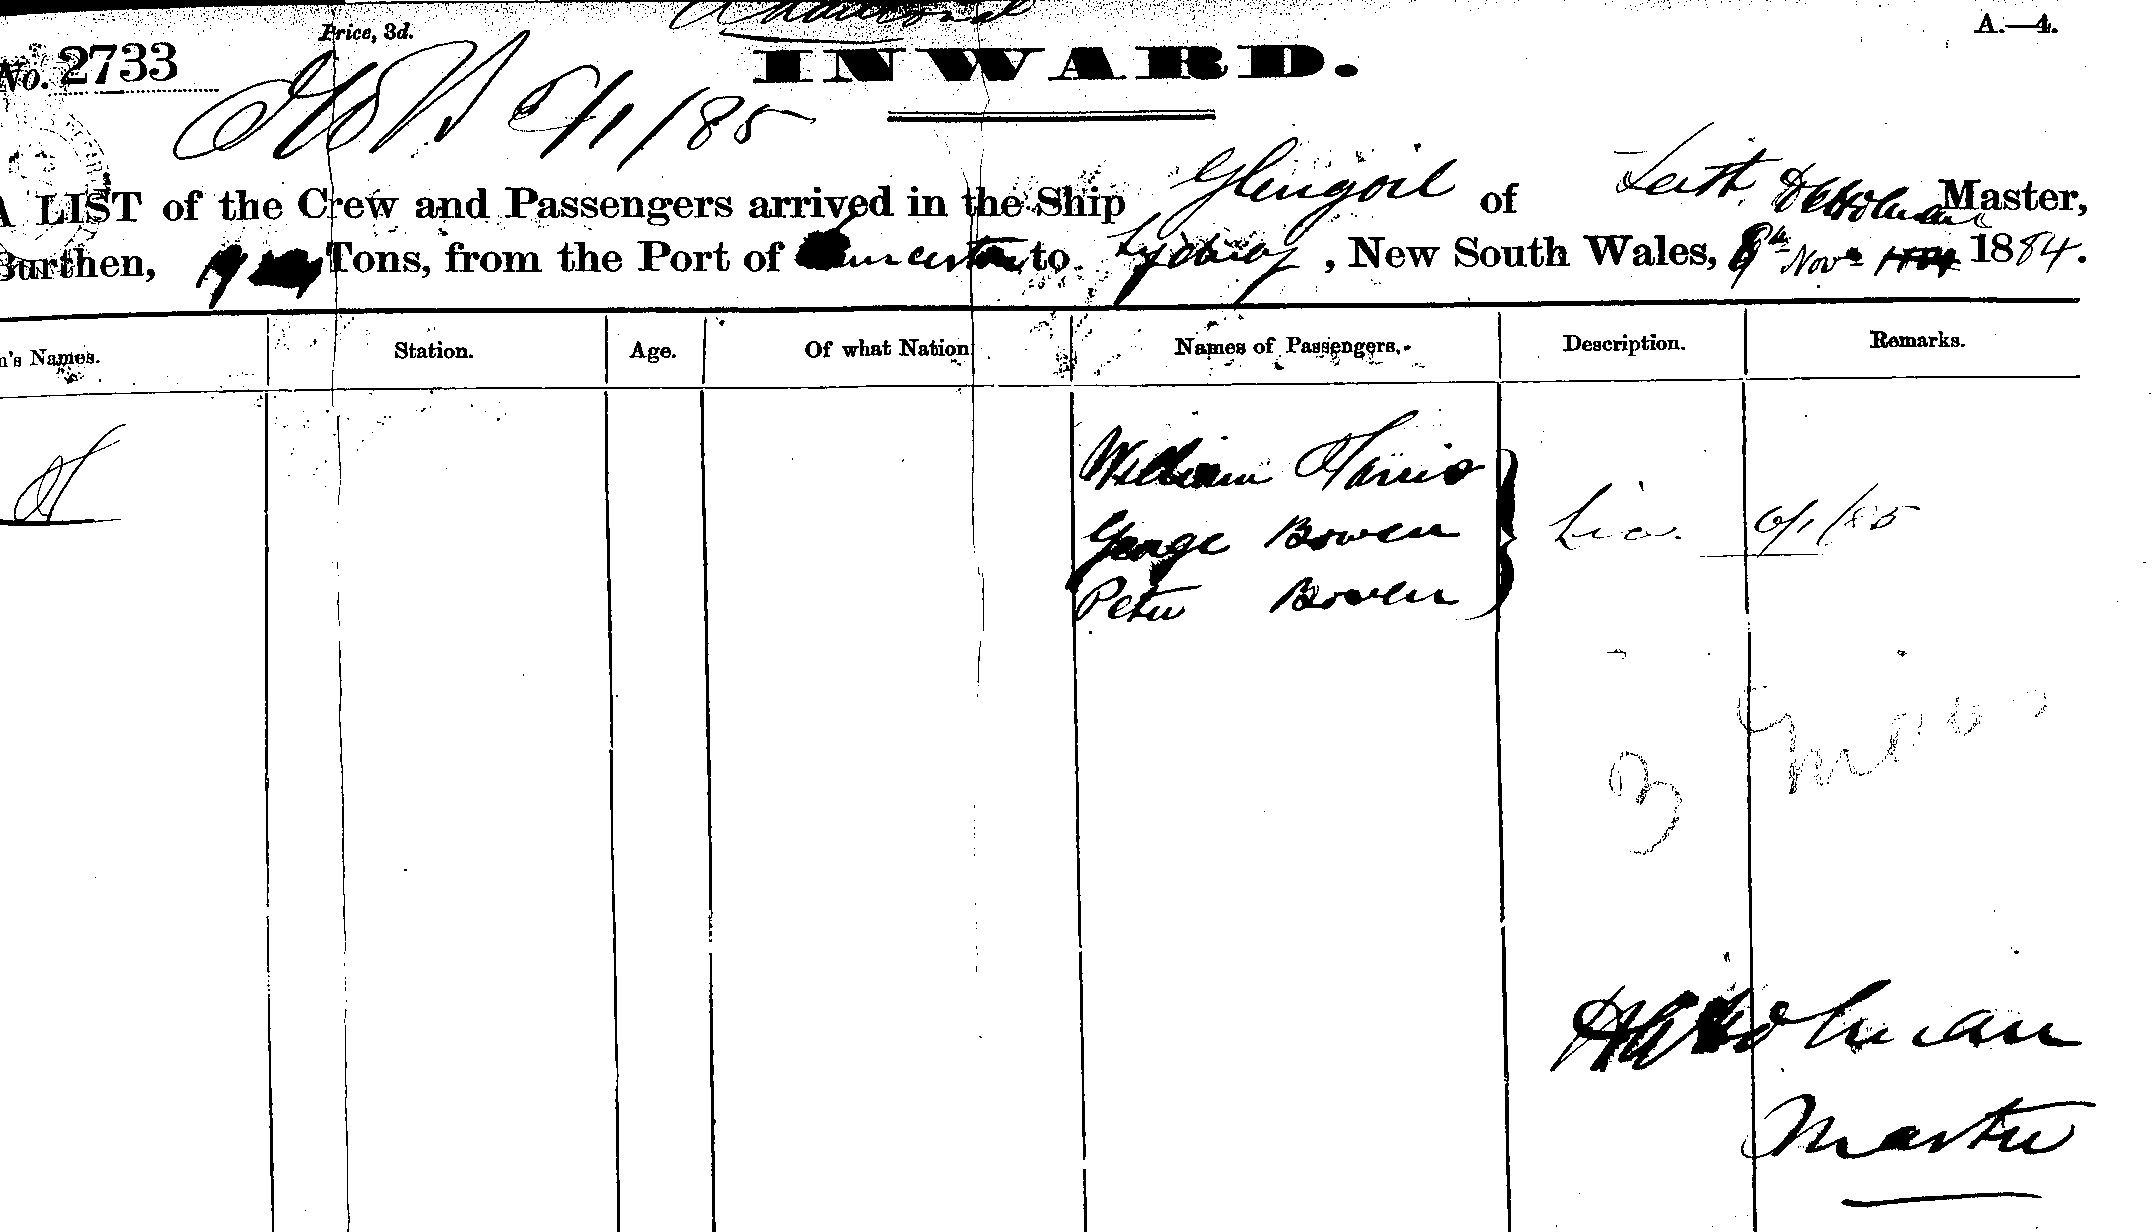 Additional
Price, 3d.
A.—4.
No. 2733
INWARD.
5/1/85
A LIST of the Crew and Passengers arrived in the Ship Glengoil of Leith, Holman Master,
Burthen, Tons, from the Port of to Sydney, New South Wales, 8th Novr 1884 1884.
n's Names. Station. Age. Of what Nation Names of Passengers. Description. Remarks.
William Harris
George Bowen
Peter Bowen
6/1/85
3
Holman
Master